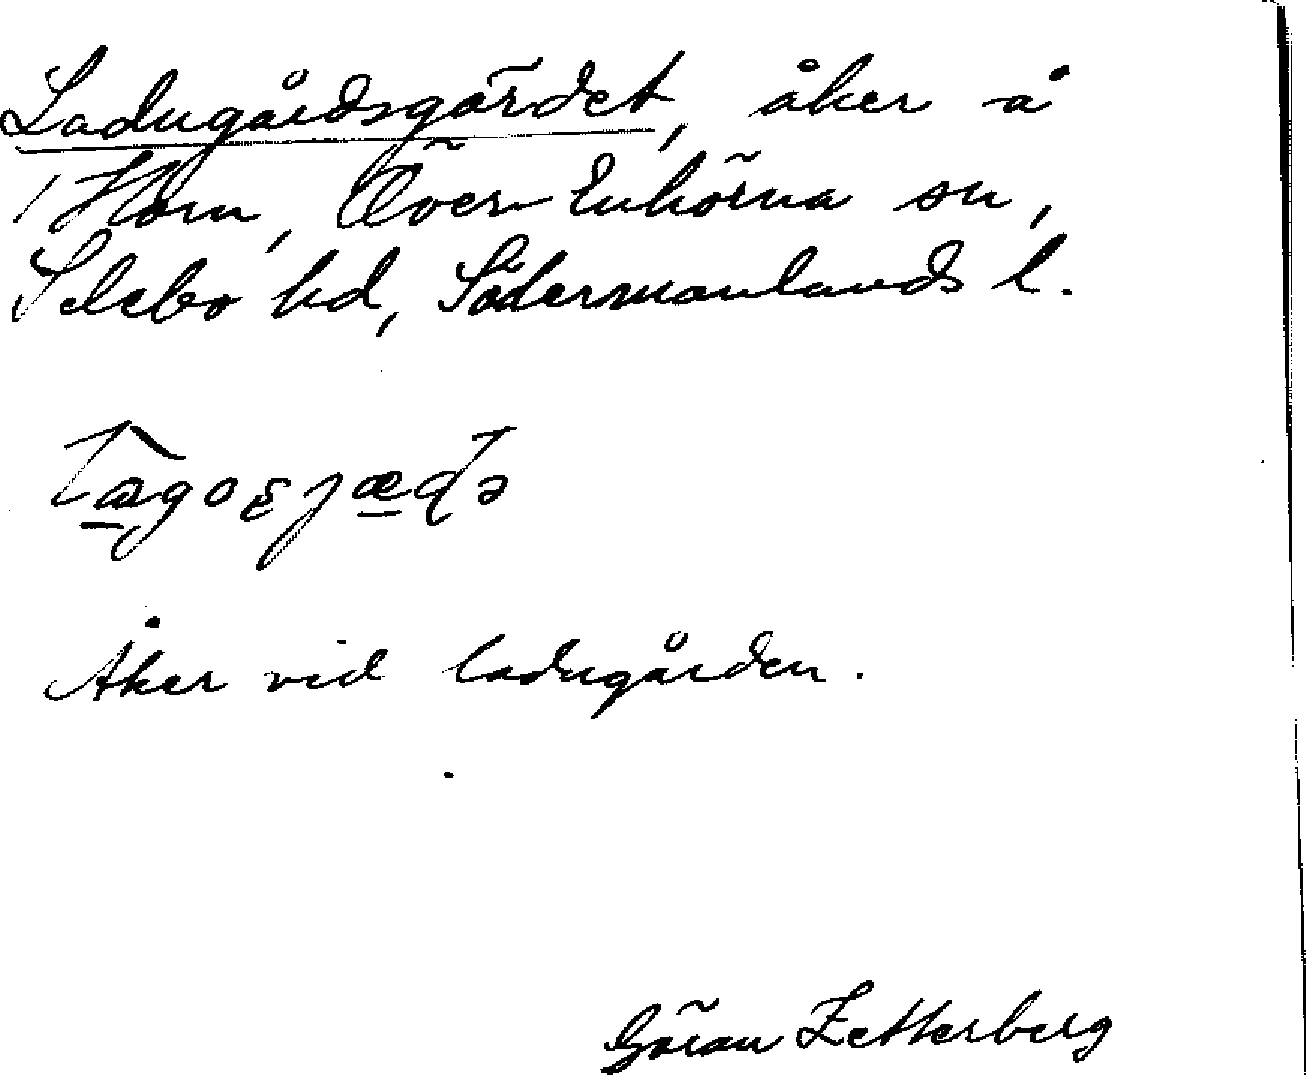 Ladugårdsgärdet, åker å
Horn, Över Enhörna sn,
Selebo hd, Södermanlands l.
Åker vid ladugården.
Göran Zetterberg